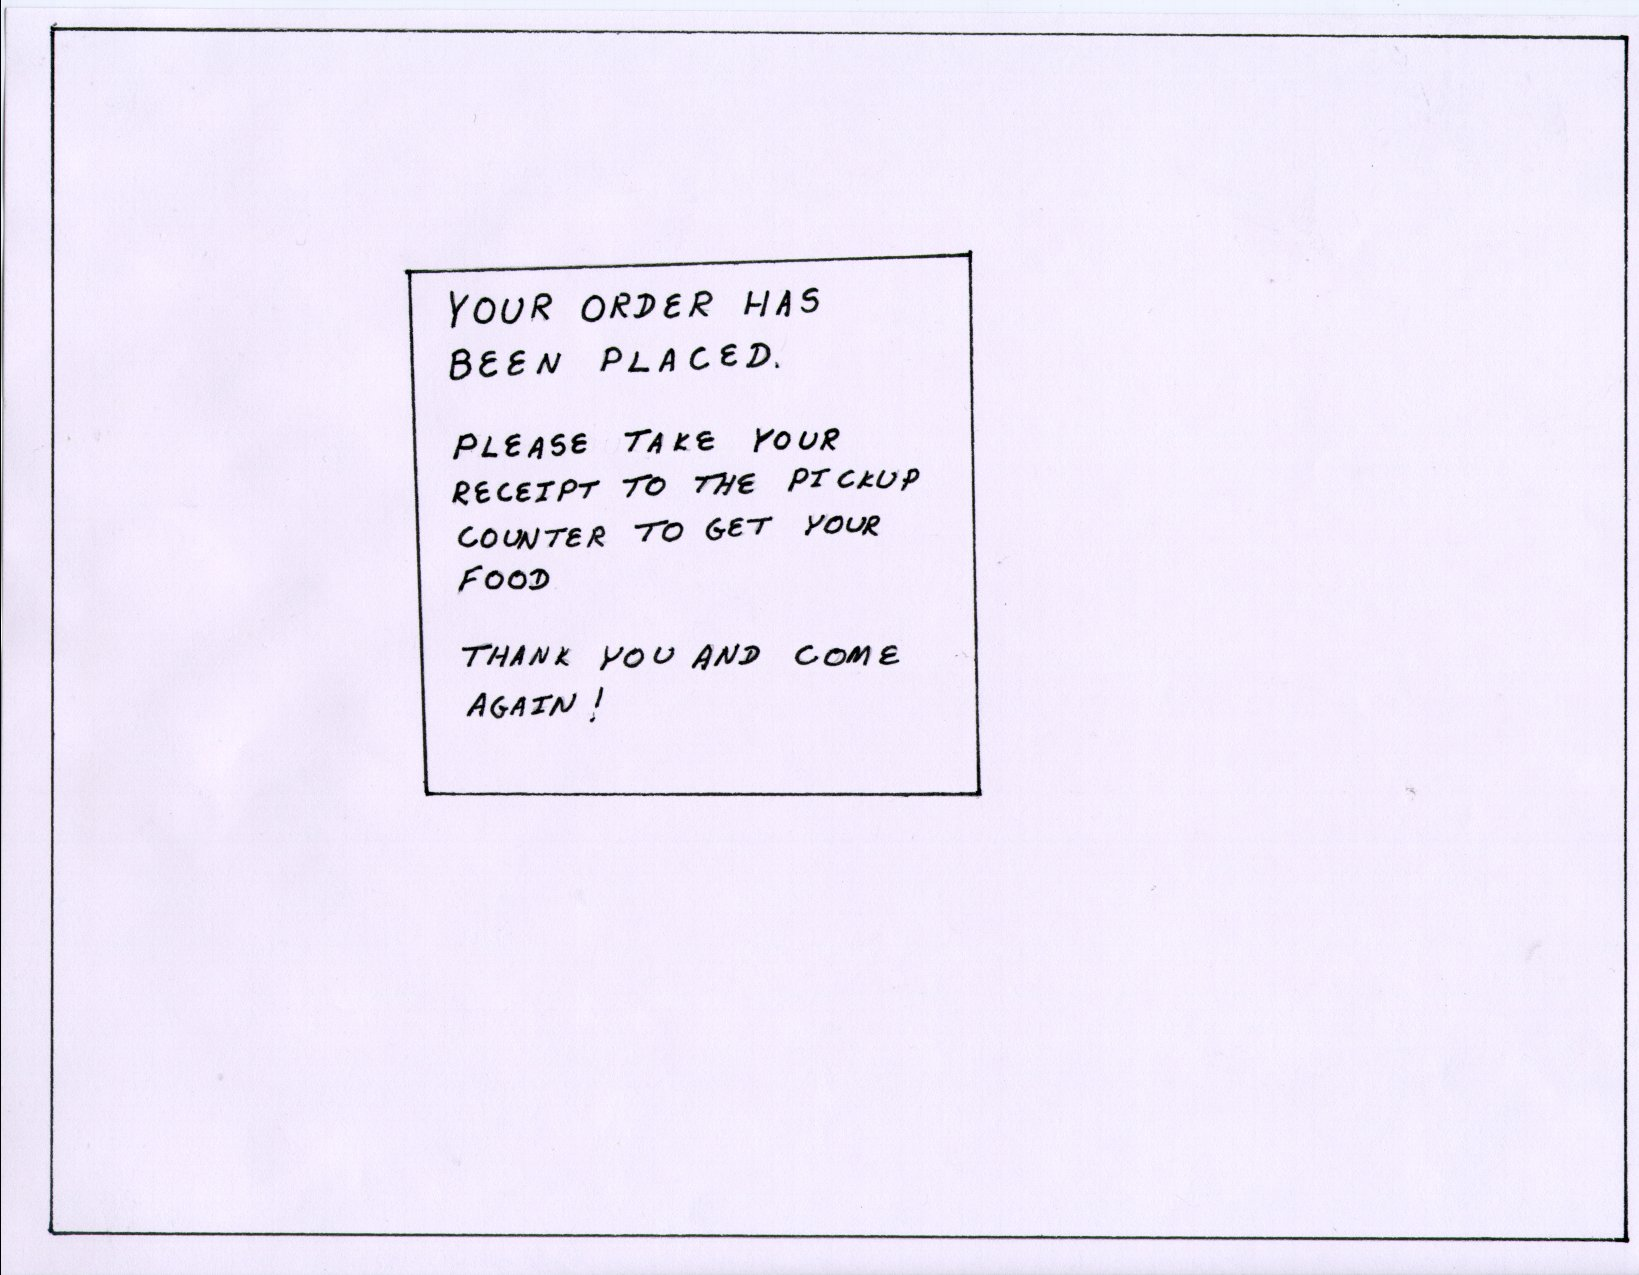 YOUR ORDER HAS
BEEN PLACED.
PLEASE TAKE YOUR
RECEIPT TO THE PICKUP
COUNTER TO GET YOUR
FOOD
THANK YOU AND COME
AGAIN!